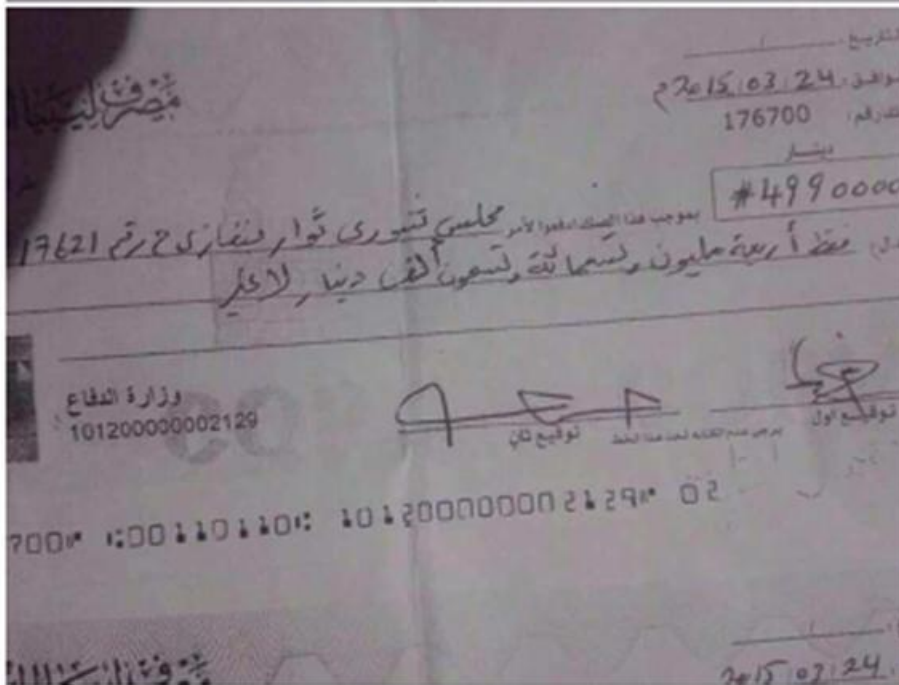 التاريخ: / /
الموافق: 2015/03/24 م
مصرف ليبيا
176700
دينار
#4990000
بموجب هذا الصك ادفعوا لأمر مجلس شورى ثوار بنغازي ح رقم 17621
فقط أربعة مليون وتسعمائة وتسعون ألف دينار لاغير
وزارة الدفاع
101200000002129
توقيع أول
توقيع ثان
يرجى عدم الكتابة تحت هذا الخط
700⑈ ⑆001101101⑆ 101200000002129⑈ 02
2015/03/24